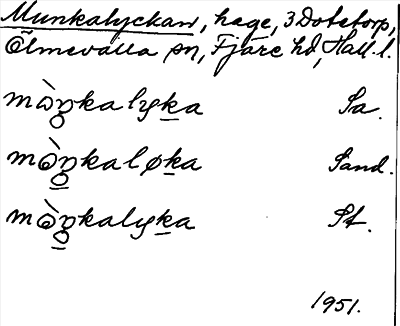 Munkalyckan, hage, 3 Dotetorp,
Ölmevalla sn, Fjäre hd, Hall. l.
mὼŋkalyka Sa.
mὼŋkaløka Sand.
mὼŋkalyka St.
1951.